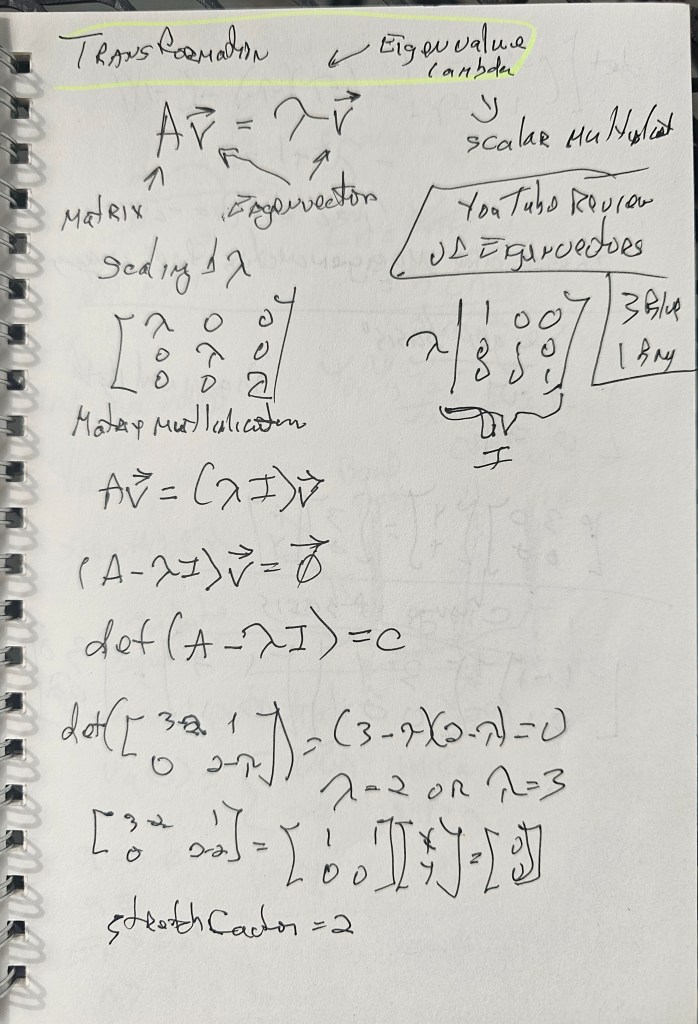 TRANSFORMATION ↙ Eigenvalue
Lambda
A v⃗ = λ v⃗
scalar
Matrix Eigenvector
YouTube Review
of Eigenvectors
Scaling λ
[λ 0 0
0 λ 0
0 0 λ]
λ [1 0 0
0 1 0
0 0 1]
I
3 Blue
1
A v⃗ = (λI) v⃗
(A - λI) v⃗ = 0⃗
det(A - λI) = 0
det([3-λ 1
0 2-λ]) = (3-λ)(2-λ) = 0
λ = 2 or λ = 3
[3-2 1
0 2-2] = [1 1
0 0] [x
y] = [0
0]
stretch factor = 2